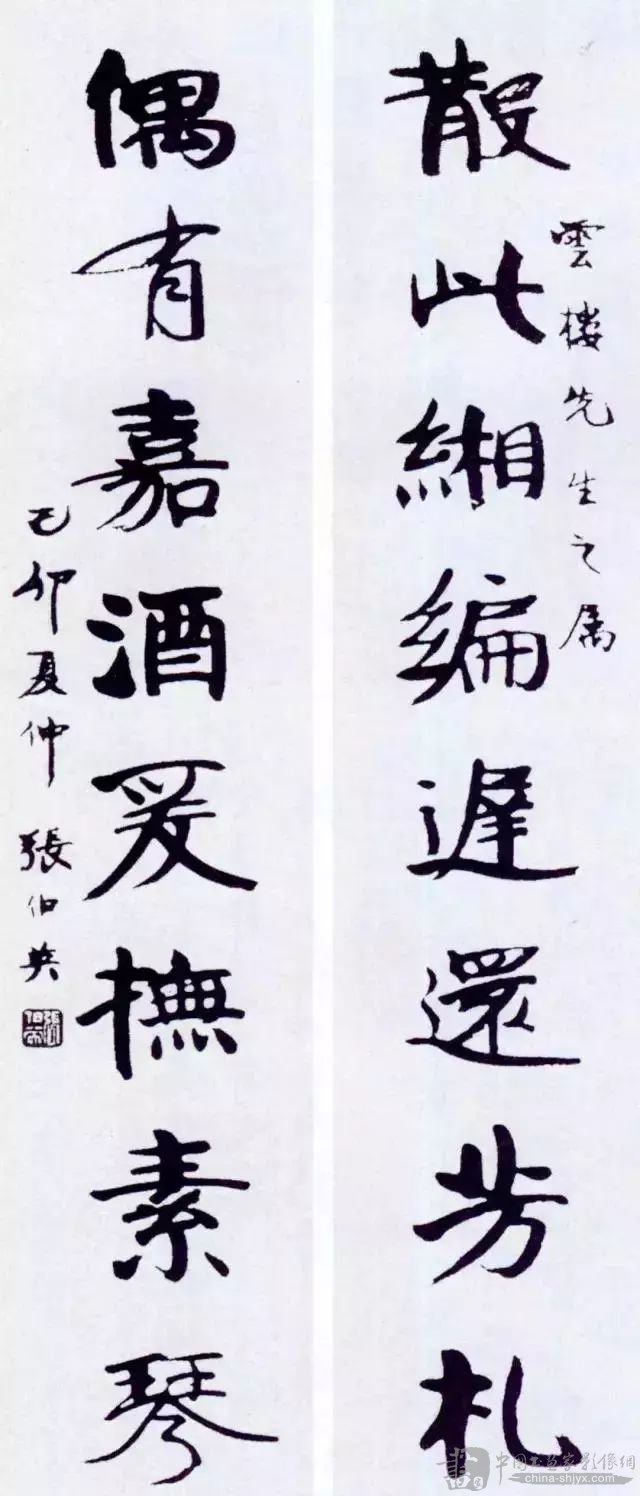 雲樓先生之属
散此緗編遲還芳札
偶有嘉酒爰撫素琴
己卯夏仲 張伯英
中国书画家影像網
china-shjyx.com